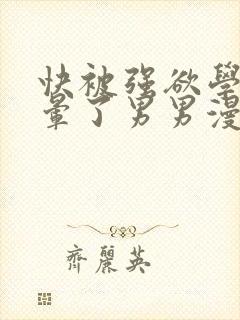 快被强欲學
暈了男男漫
齊麗英